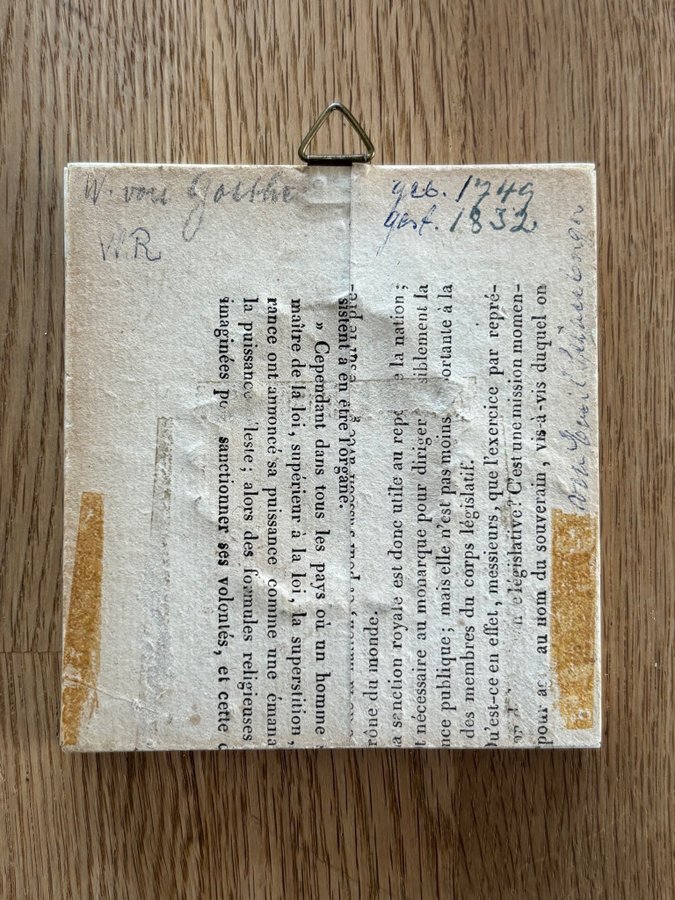 W. von Goethe
W.R
geb. 1749
gest. 1832
von Emil
sistent à en être l'organe.
» Cependant dans tous les pays où un homme
maître de la loi, supérieur à la loi, la superstition,
rance ont annoncé sa puissance comme une émana
la puissance leste; alors des formules religieuses
imaginées po sanctionner ses volontés, et cette
rône du monde.
a sanction royale est donc utile au repo e la nation ;
t nécessaire au monarque pour diriger siblement la
nce publique ; mais elle n'est pas moins ortante à la
des membres du corps législatif.
Qu'est-ce en effet, messieurs, que l'exercice par repré-
e législative? C'est une mission momen-
pour au nom du souverain, vis-à-vis duquel on